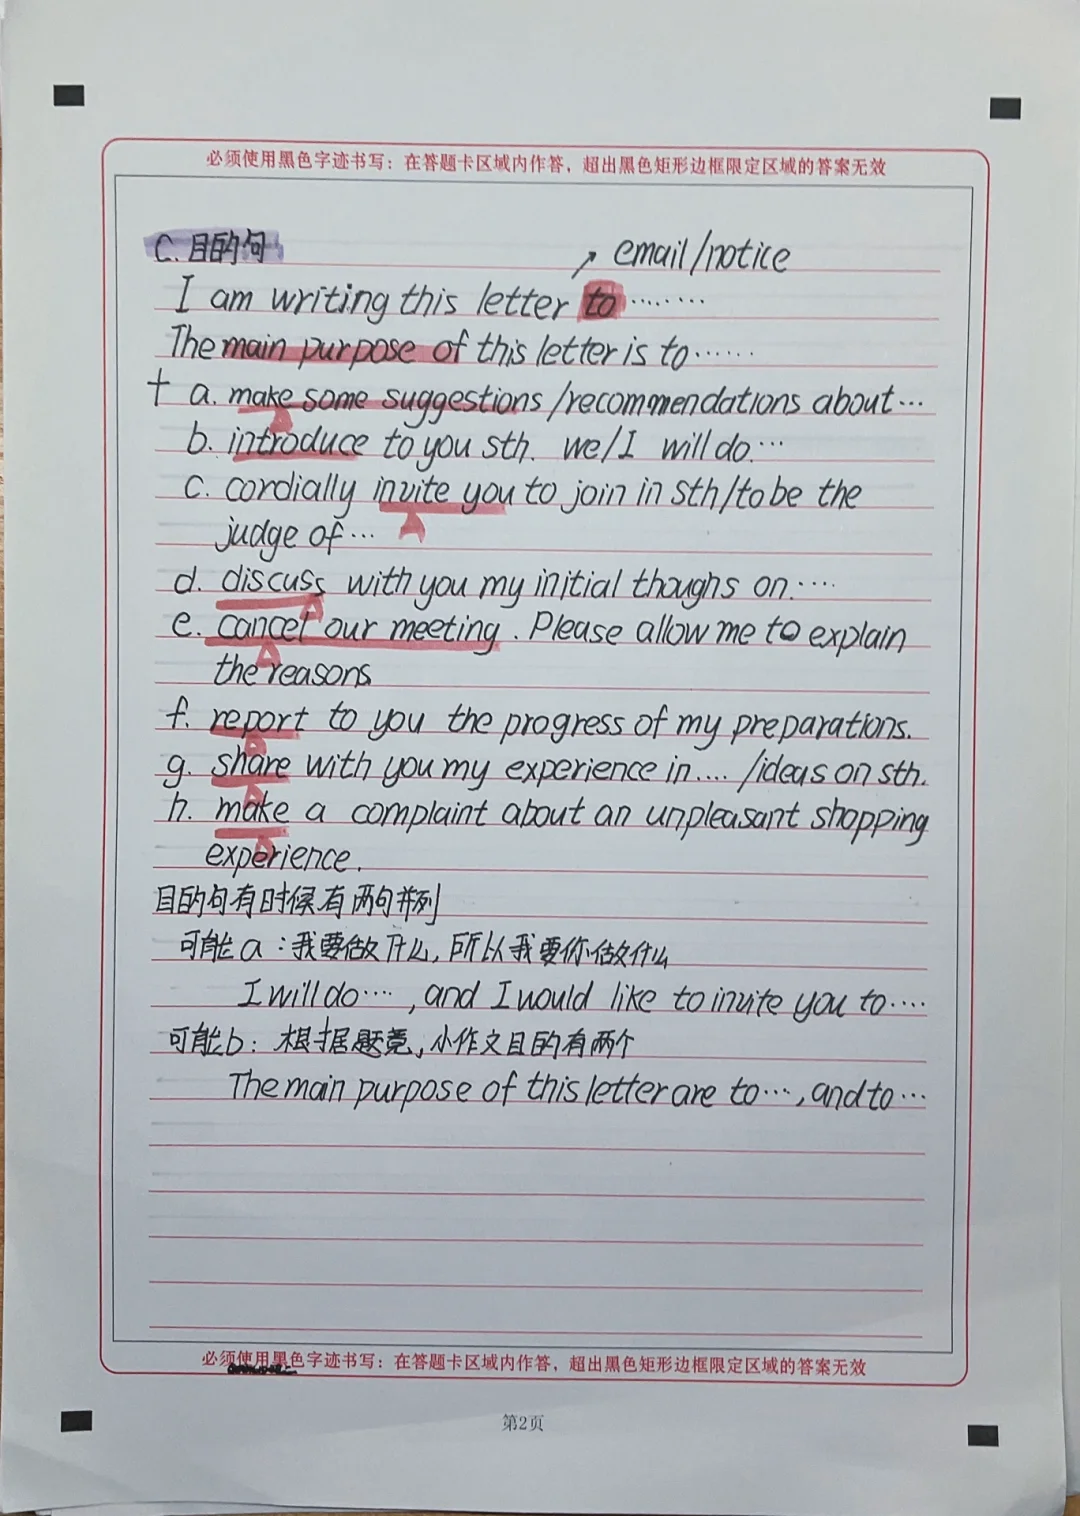 必须使用黑色字迹书写：在答题卡区域内作答，超出黑色矩形边框限定区域的答案无效
C. 目的句
↗ email/notice
I am writing this letter to ........
The main purpose of this letter is to ......
+ a. make some suggestions /recommendations about...
b. introduce to you sth. we/I will do...
c. cordially invite you to join in sth/to be the
judge of ...
d. discuss with you my initial thoughs on.....
e. cancel our meeting. Please allow me to explain
the reasons
f. report to you the progress of my preparations.
g. share with you my experience in.... /ideas on sth.
h. make a complaint about an unpleasant shopping
experience.
目的句有时候有两句并列
可能a：我要做什么，所以我要你做什么
I will do...., and I would like to invite you to....
可能b：根据题意，小作文目的有两个
The main purpose of this letter are to..., and to...
必须使用黑色字迹书写：在答题卡区域内作答，超出黑色矩形边框限定区域的答案无效
第2页